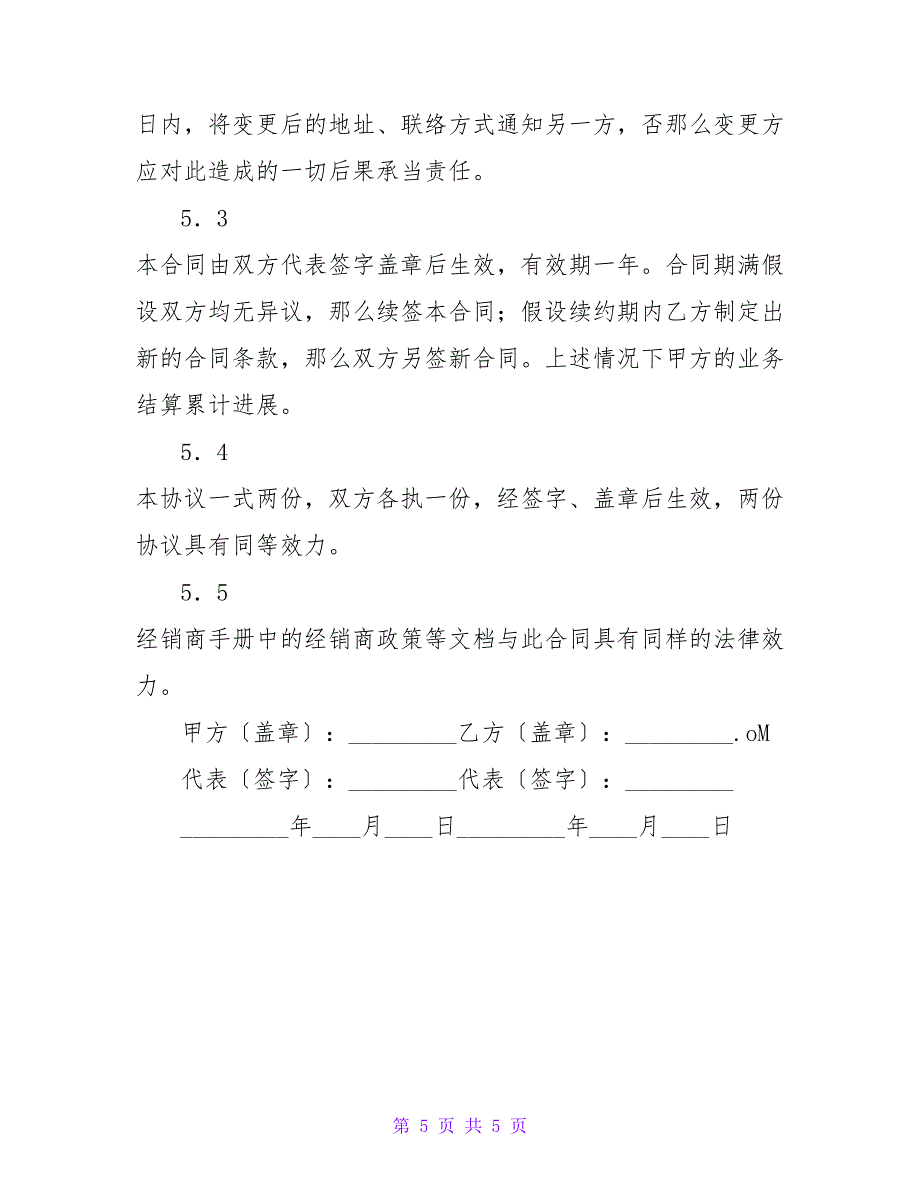 日内，将变更后的地址、联络方式通知另一方，否那么变更方
应对此造成的一切后果承当责任。
5．3
本合同由双方代表签字盖章后生效，有效期一年。合同期满假
设双方均无异议，那么续签本合同；假设续约期内乙方制定出
新的合同条款，那么双方另签新合同。上述情况下甲方的业务
结算累计进展。
5．4
本协议一式两份，双方各执一份，经签字、盖章后生效，两份
协议具有同等效力。
5．5
经销商手册中的经销商政策等文档与此合同具有同样的法律效
力。
甲方〔盖章〕：_________乙方〔盖章〕：_________.oM
代表〔签字〕：_________代表〔签字〕：_________
_________年____月____日_________年____月____日
第 5 页 共 5 页